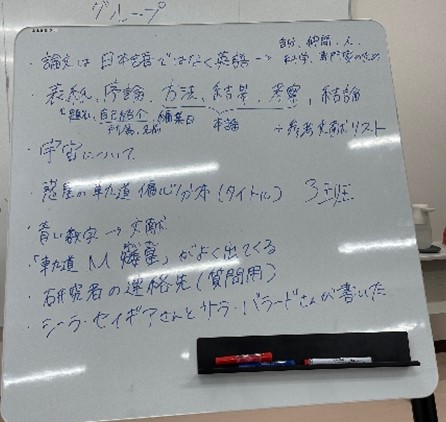 グループ
・論文は日本語ではなく英語→ 自分、仲間、人、科学、専門家のため
・表紙、序論、方法、結果、考察、結論
題名、自己紹介、編集日 本論 参考文献リスト
所属、名前
・宇宙について
・惑星の軌道 偏心分布(タイトル)
・青い数字→文献
「軌道 M 」がよく出てくる
・研究者の連絡先(質問用)
・シーラ・セイギアさんとサラ・バラードさんが書いた